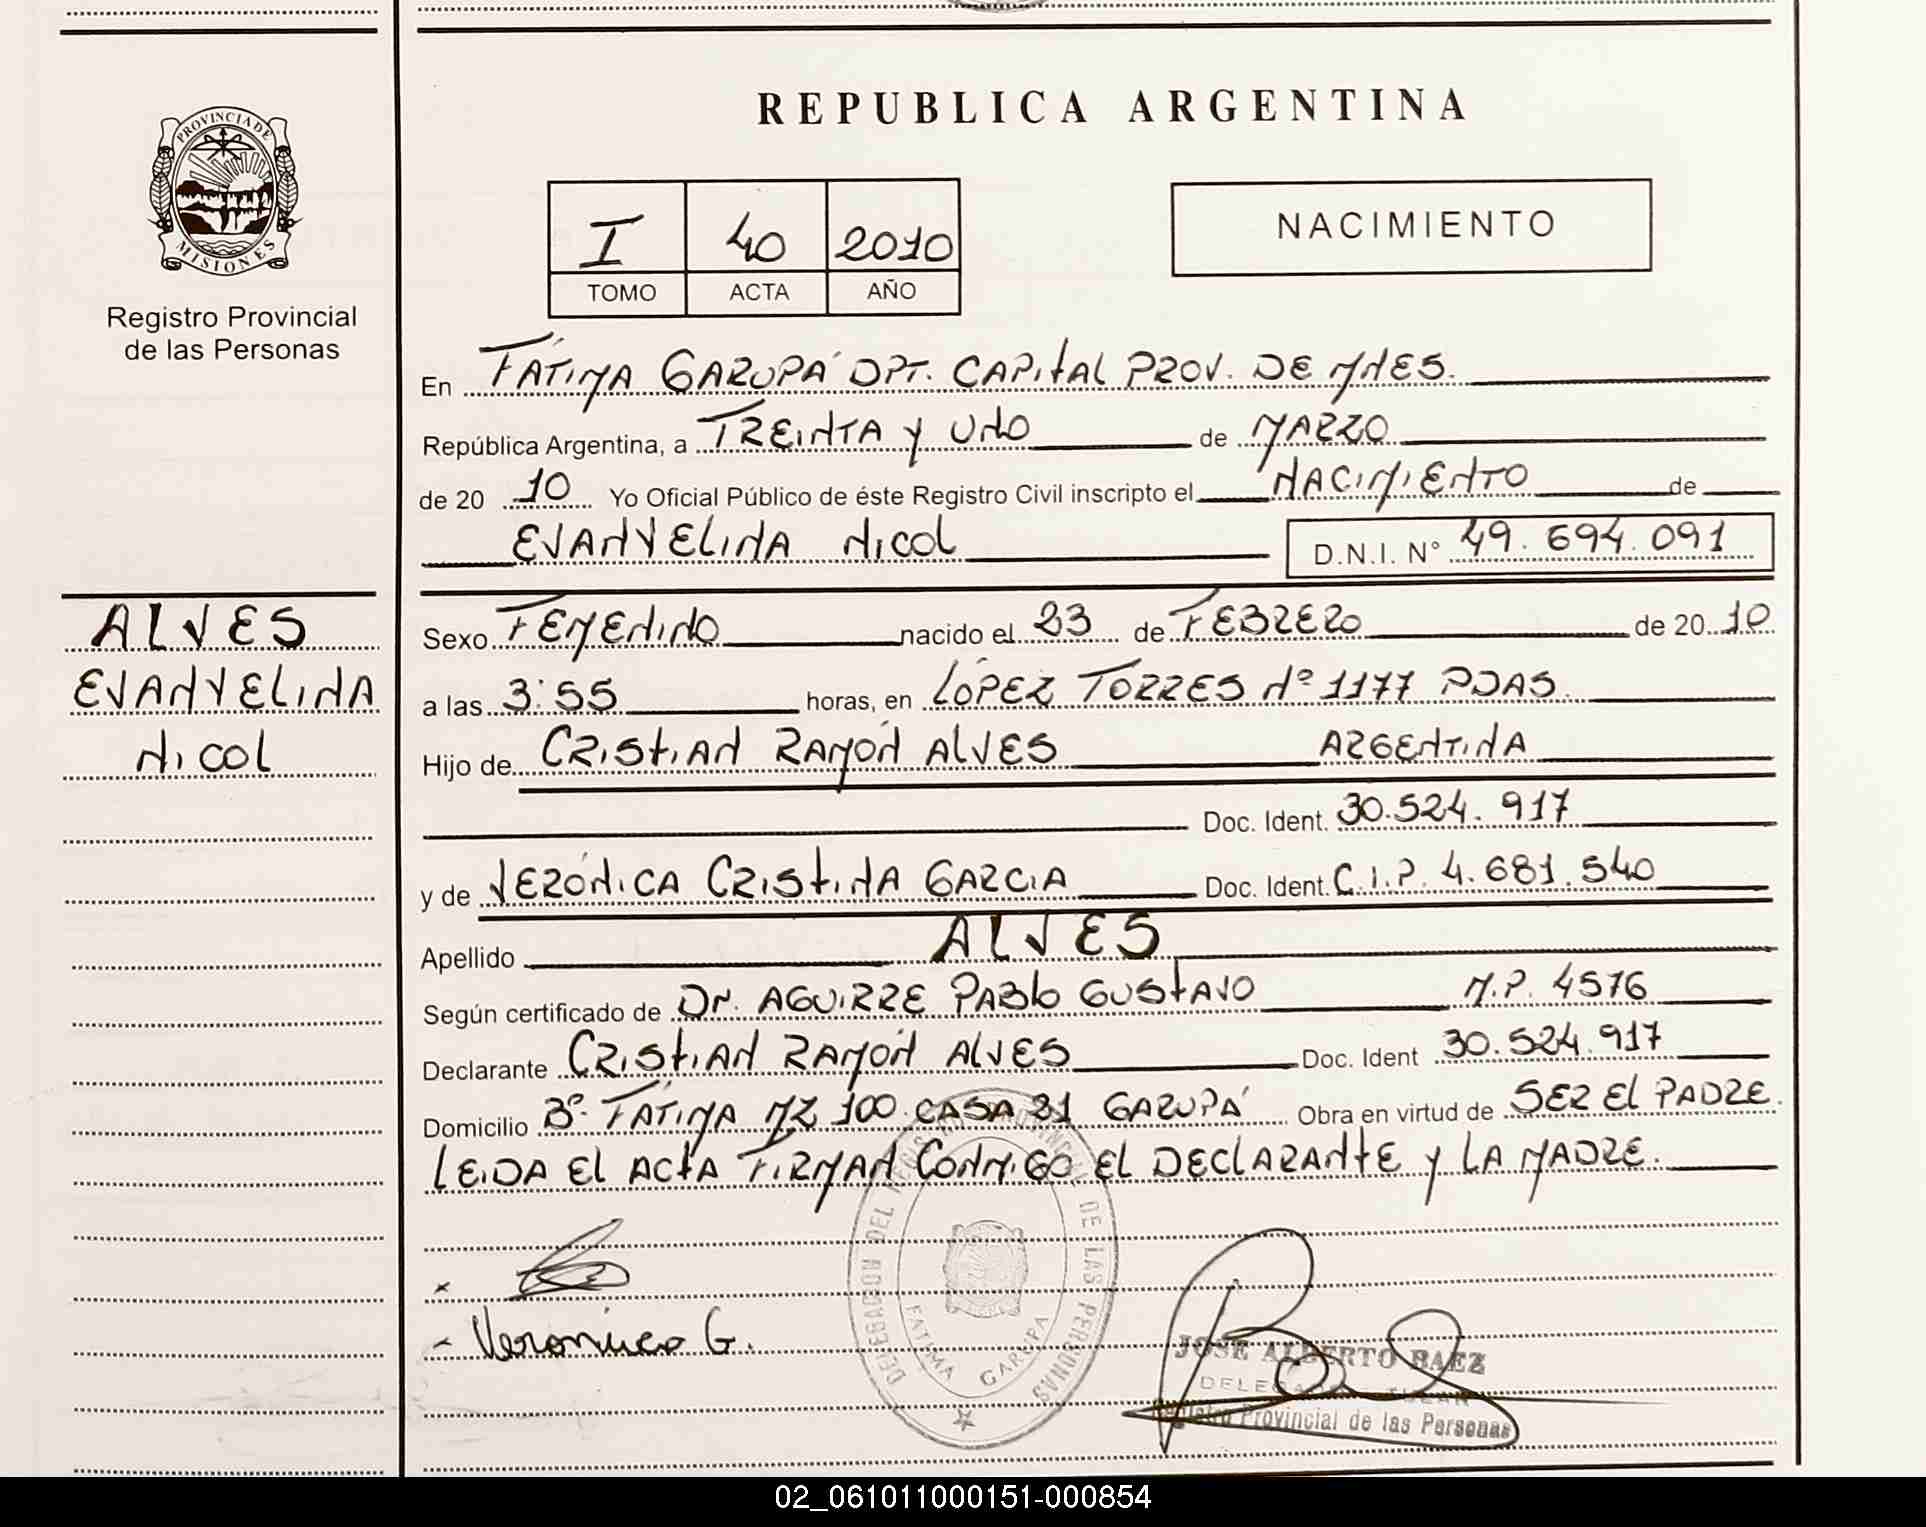 REPUBLICA ARGENTINA
PROVINCIA DE
MISIONES
Registro Provincial
de las Personas
I 40 2010
TOMO ACTA AÑO
NACIMIENTO
En FÁTIMA GARUPÁ DPT. CAPITAL PROV. DE MNES.
República Argentina, a TREINTA Y UNO de MARZO
de 20 10 Yo Oficial Público de éste Registro Civil inscripto el NACIMIENTO de
EVANYELINA NICOL D.N.I. N° 49.694.091
ALVES
EVANYELINA
NICOL
Sexo FEMENINO nacido el 23 de FEBRERO de 20 10
a las 3:55 horas, en LÓPEZ TORRES Nº 1177 PDAS.
Hijo de CRISTIAN RAMÓN ALVES ARGENTINA
Doc. Ident. 30.524.917
y de VERÓNICA CRISTINA GARCIA Doc. Ident. C.I.P. 4.681.540
Apellido ALVES
Según certificado de Dr. AGUIRRE PABLO GUSTAVO M.P. 4576
Declarante CRISTIAN RAMÓN ALVES Doc. Ident 30.524.917
Domicilio Bº. FÁTIMA MZ 100 CASA 21 GARUPÁ Obra en virtud de SER EL PADRE.
LEIDA EL ACTA FIRMAN CONMIGO EL DECLARANTE Y LA MADRE.
DELEGACION DEL REGISTRO PROVINCIAL DE LAS PERSONAS
FATIMA GARUPA
Veronica G.
JOSE ALBERTO BAEZ
DELEGADO TITULAR
Registro Provincial de las Personas
02_061011000151-000854